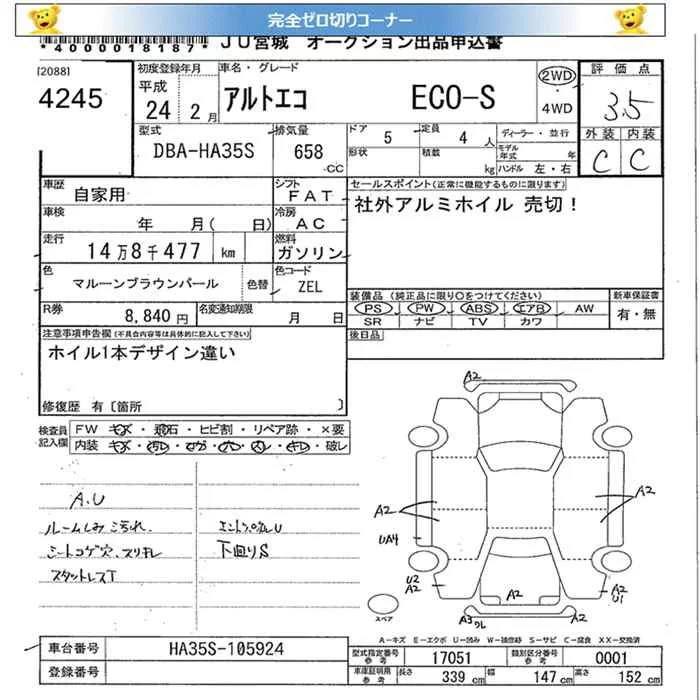 完全ゼロ切りコーナー
*4000018187* JU宮城 オークション出品申込書
[2088]
4245
初度登録年月
平成
24 2月
車名・グレード
アルトエコ ECO-S
2WD
4WD
評価点
3.5
型式
DBA-HA35S
排気量
658
CC
ドア 5
定員 4 人
形状
積載 kg
ディーラー・並行
モデル年式 年
ハンドル 左・右
外装 内装
C C
車歴
自家用
シフト
FAT
セールスポイント(正常に機能するものに限ります)
社外アルミホイル 売切!
車検
年 月( 日)
冷房
AC
走行
14万8千477 km
燃料
ガソリン
色
マルーンブラウンパール
色替
色コード
ZEL
R券
8,840 円
名変通知期限
月 日
装備品(純正品に限り〇をつけてください)
PS PW ABS エアB AW
SR ナビ TV カワ
新車保証書
有・無
注意事項申告欄(不具合内容等は具体的に記入して下さい)
ホイル1本デザイン違い
後日品
修復歴 有〔箇所 〕
検査員記入欄
FW キズ・飛石・ヒビ割・リペア跡・×要
内装 キズ・汚れ・コゲ・穴・内レ・キレ・破レ
A.U
ルームしみ汚れ
シートコゲ穴、スリキレ
スタットレスT
下廻りS
A2
A2
A2
UA4
U2
A2
A2
A2
U1
A3
スペア
A-キズ E-エクボ U-凹み W-補修跡 S-サビ C-腐食 XX-交換済
車台番号
HA35S-105924
登録番号
型式指定番号
参考
17051
類別区分番号
参考
0001
車庫証明用
参考
長さ 339 cm
幅 147 cm
高さ 152 cm